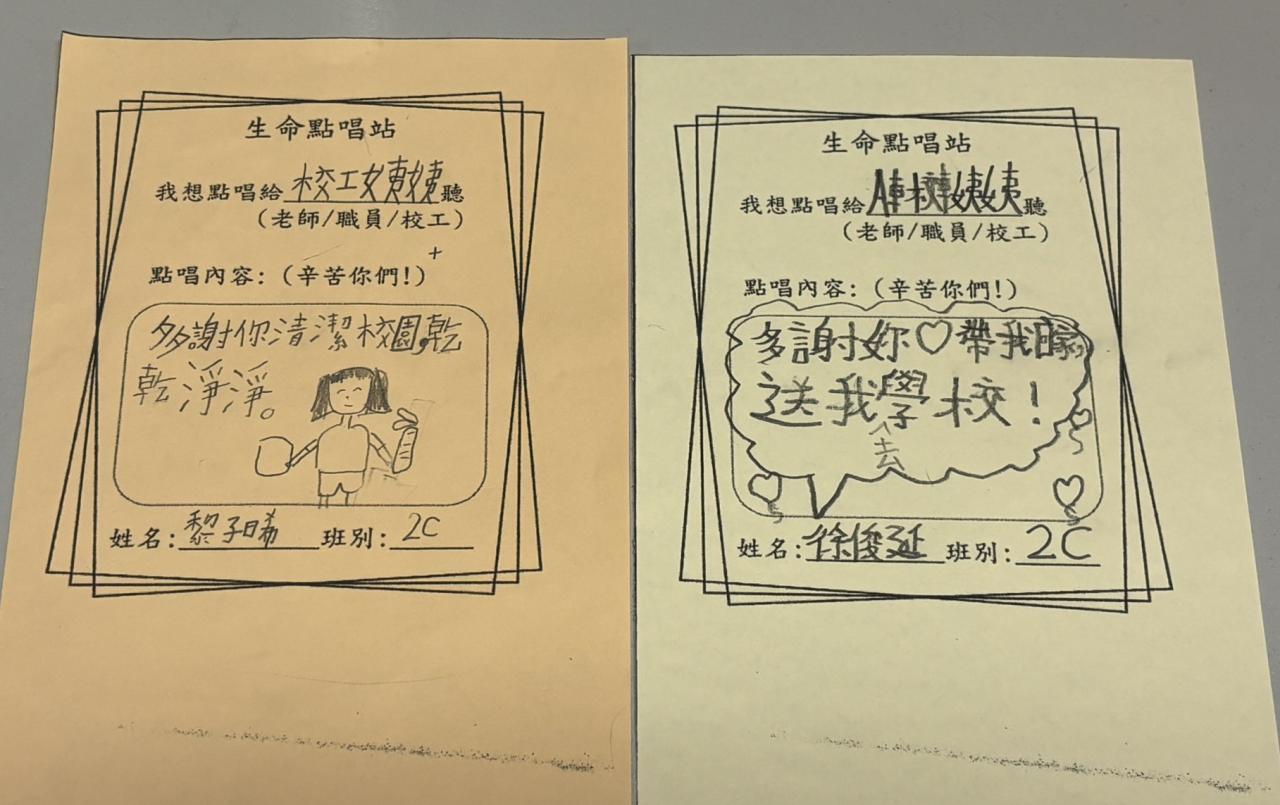 生命點唱站
我想點唱給校工姨姨聽
(老師/職員/校工)
點唱內容:(辛苦你們!)
多謝你清潔校園,乾
乾淨淨。
姓名:黎子晞 班別:2C
生命點唱站
我想點唱給車校姨姨聽
(老師/職員/校工)
點唱內容:(辛苦你們!)
多謝妳♡帶我
送我學校!
去
姓名:徐俊延 班別:2C